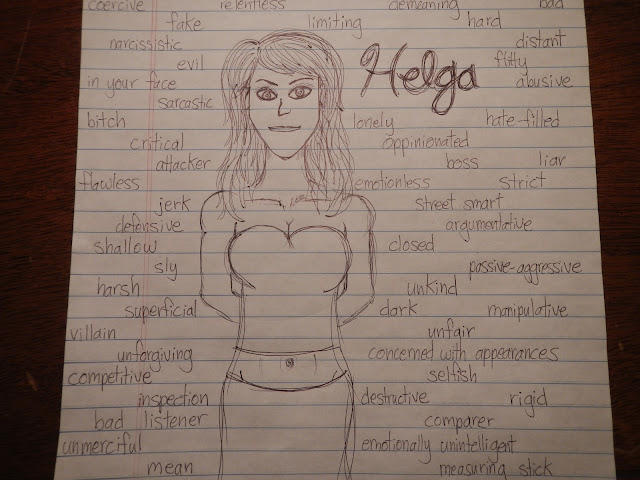 coercive relentless demeaning bad
fake limiting hard
narcissistic distant
Helga
evil flitty
in your face abusive
sarcastic
bitch lonely hate-filled
critical oppinionated
attacker boss liar
flawless emotionless strict
jerk street smart
defensive argumentative
shallow closed
sly passive-aggressive
harsh unkind
superficial dark manipulative
villain unfair
unforgiving concerned with appearances
competitive selfish
inspection destructive rigid
bad listener comparer
unmerciful emotionally unintelligent
mean measuring stick